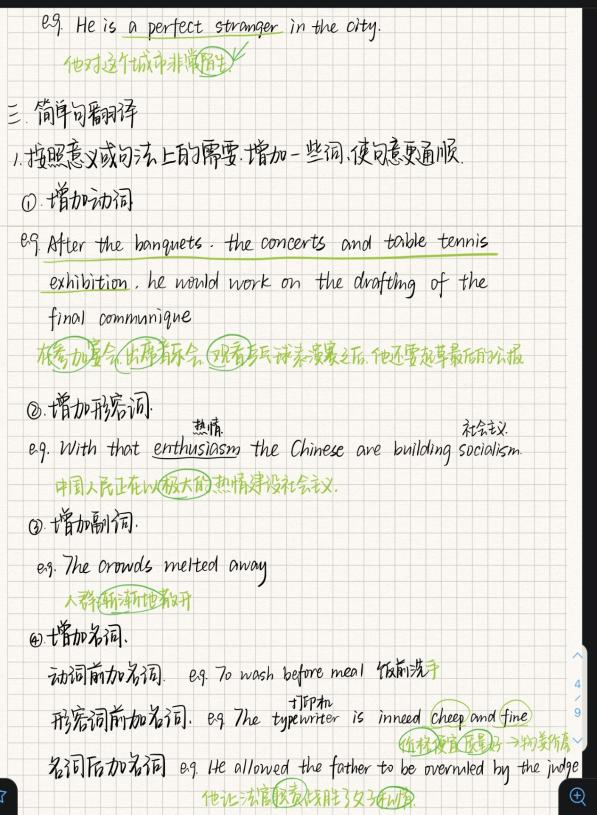 e.g. He is a perfect stranger in the city.
他对这个城市非常陌生.
三. 简单句翻译
1. 按照意义或句法上的需要.增加一些词、使句意更通顺.
① 增加动词
e.g. After the banquets. the concerts and table tennis
exhibition. he would work on the drafting of the
final communique
在参加宴会、出席音乐会、观看乒乓球表演赛之后.他还要起草最后的公报
② 增加形容词.
热情 社会主义.
e.g. With that enthusiasm the Chinese are building socialism.
中国人民正在以极大的热情建设社会主义.
③ 增加副词.
e.g. The crowds melted away
人群渐渐地散开
④ 增加名词.
动词前加名词. e.g. To wash before meal 饭前洗手
打印机
形容词前加名词. e.g. The typewriter is inneed cheep and fine
价格便宜质量好→物美价廉
名词后加名词 e.g. He allowed the father to be overruled by the judge
他让法官职责战胜了父子私情.
4
/
9